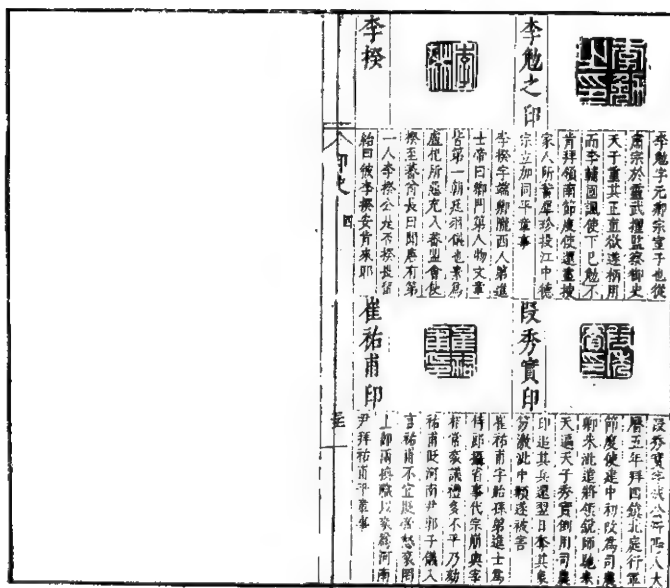 李勉之印
李勉字元卿宗室子也從
肅宗於靈武擢監察御史
天子重其正直欲遂柄用
而李輔國諷使下己勉不
肯拜嶺南節度使還盡搜
家人所蓄犀珍投江中德
宗立加同平章事
李揆
李揆字端卿隴西人第進
士帝曰卿門第人物文章
皆第一朝廷羽儀也素為
盧杞所惡充入蕃盟會使
揆至蕃酋長曰聞唐有第
一人李揆公是不揆畏留
紿曰彼李揆安肯來耶
段秀實印
段秀實字成公
曆五年拜四鎮北庭行軍
節度使建中初改為司農
卿朱泚遣將領銳師馳來
天逼天子秀實倒用司農
印追其兵還翌日奪其象
笏激泚中顙遂被害
崔祐甫印
崔祐甫字貽孫第進士為
侍郎攝省事代宗崩與常
袞議禮多不平乃劾
祐甫貶河南尹郭子儀入
言祐甫不宜貶帝怒袞罔
上即兩換職以袞為河南
尹拜祐甫平章事
印史
四